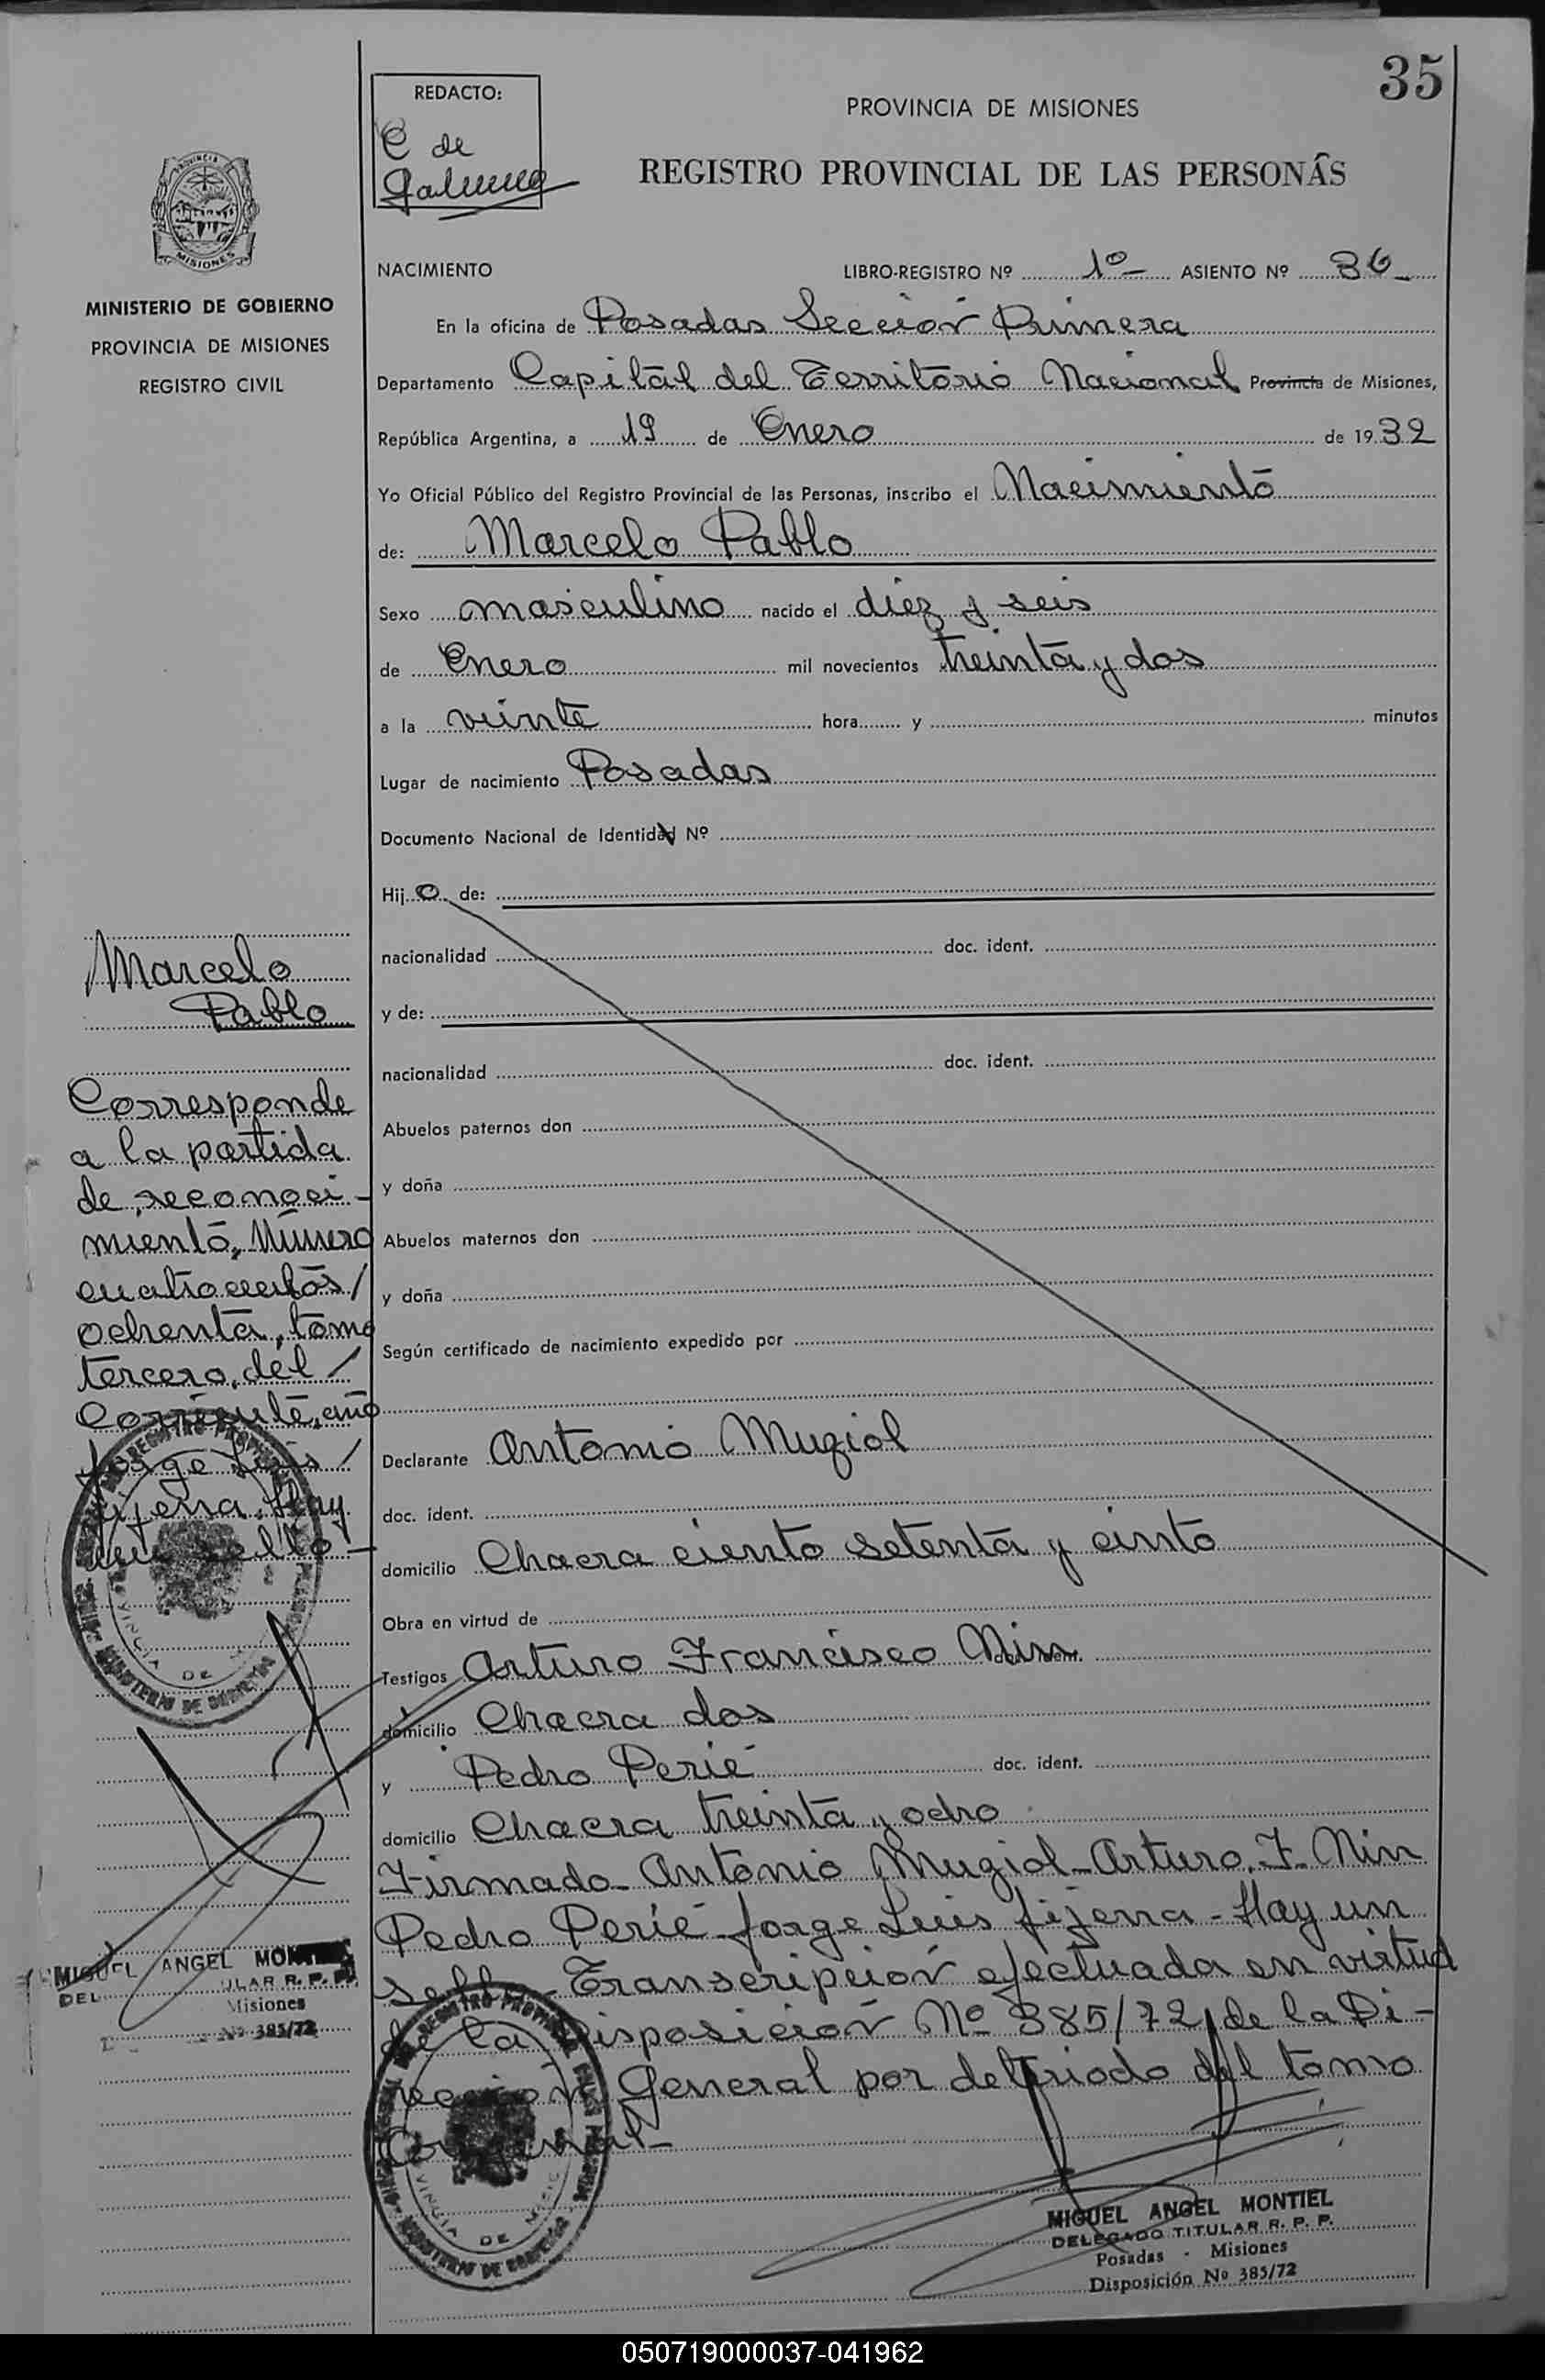 35
REDACTO:
C de
PROVINCIA DE MISIONES
REGISTRO PROVINCIAL DE LAS PERSONAS
PROVINCIA
MISIONES
NACIMIENTO LIBRO-REGISTRO Nº 1º ASIENTO Nº 36
MINISTERIO DE GOBIERNO
PROVINCIA DE MISIONES
REGISTRO CIVIL
En la oficina de Posadas Sección Primera
Departamento Capital del Territorio Nacional Provincia de Misiones,
República Argentina, a 19 de Enero de 1932
Yo Oficial Público del Registro Provincial de las Personas, inscribo el Nacimiento
de: Marcelo Pablo
Sexo masculino nacido el diez y seis
de Enero mil novecientos treinta y dos
a la veinte hora y minutos
Lugar de nacimiento Posadas
Documento Nacional de Identidad Nº
Hijo de:
nacionalidad doc. ident.
y de:
nacionalidad doc. ident.
Abuelos paternos don
y doña
Abuelos maternos don
y doña
Según certificado de nacimiento expedido por
Declarante Antonio Mugiol
doc. ident.
domicilio Chacra ciento setenta y cinto
Obra en virtud de
Testigos Arturo Francisco Nin
domicilio Chacra dos
y Pedro Perié doc. ident.
domicilio Chacra treinta y ocho
Firmado Antonio Mugiol - Arturo F. Nin
Pedro Perié Jorge Luis Jijena - Hay un
sello Transcripción efectuada en virtud
de la Disposición Nº 385/72 de la Di-
rección General por detriodo del tomo
original
Marcelo
Pablo
Corresponde
a la partida
de reconoci-
miento, Número
cuatrocientos /
ochenta, tomo
tercero, del /
Corriente, año
Jorge Luis /
Jijena. Hay
un sello -
MIGUEL ANGEL
DEL ULAR R. P. P.
Misiones
Nº 385/72
MIGUEL ANGEL MONTIEL
DELEGADO TITULAR R. P. P.
Posadas - Misiones
Disposición Nº 385/72
050719000037-041962